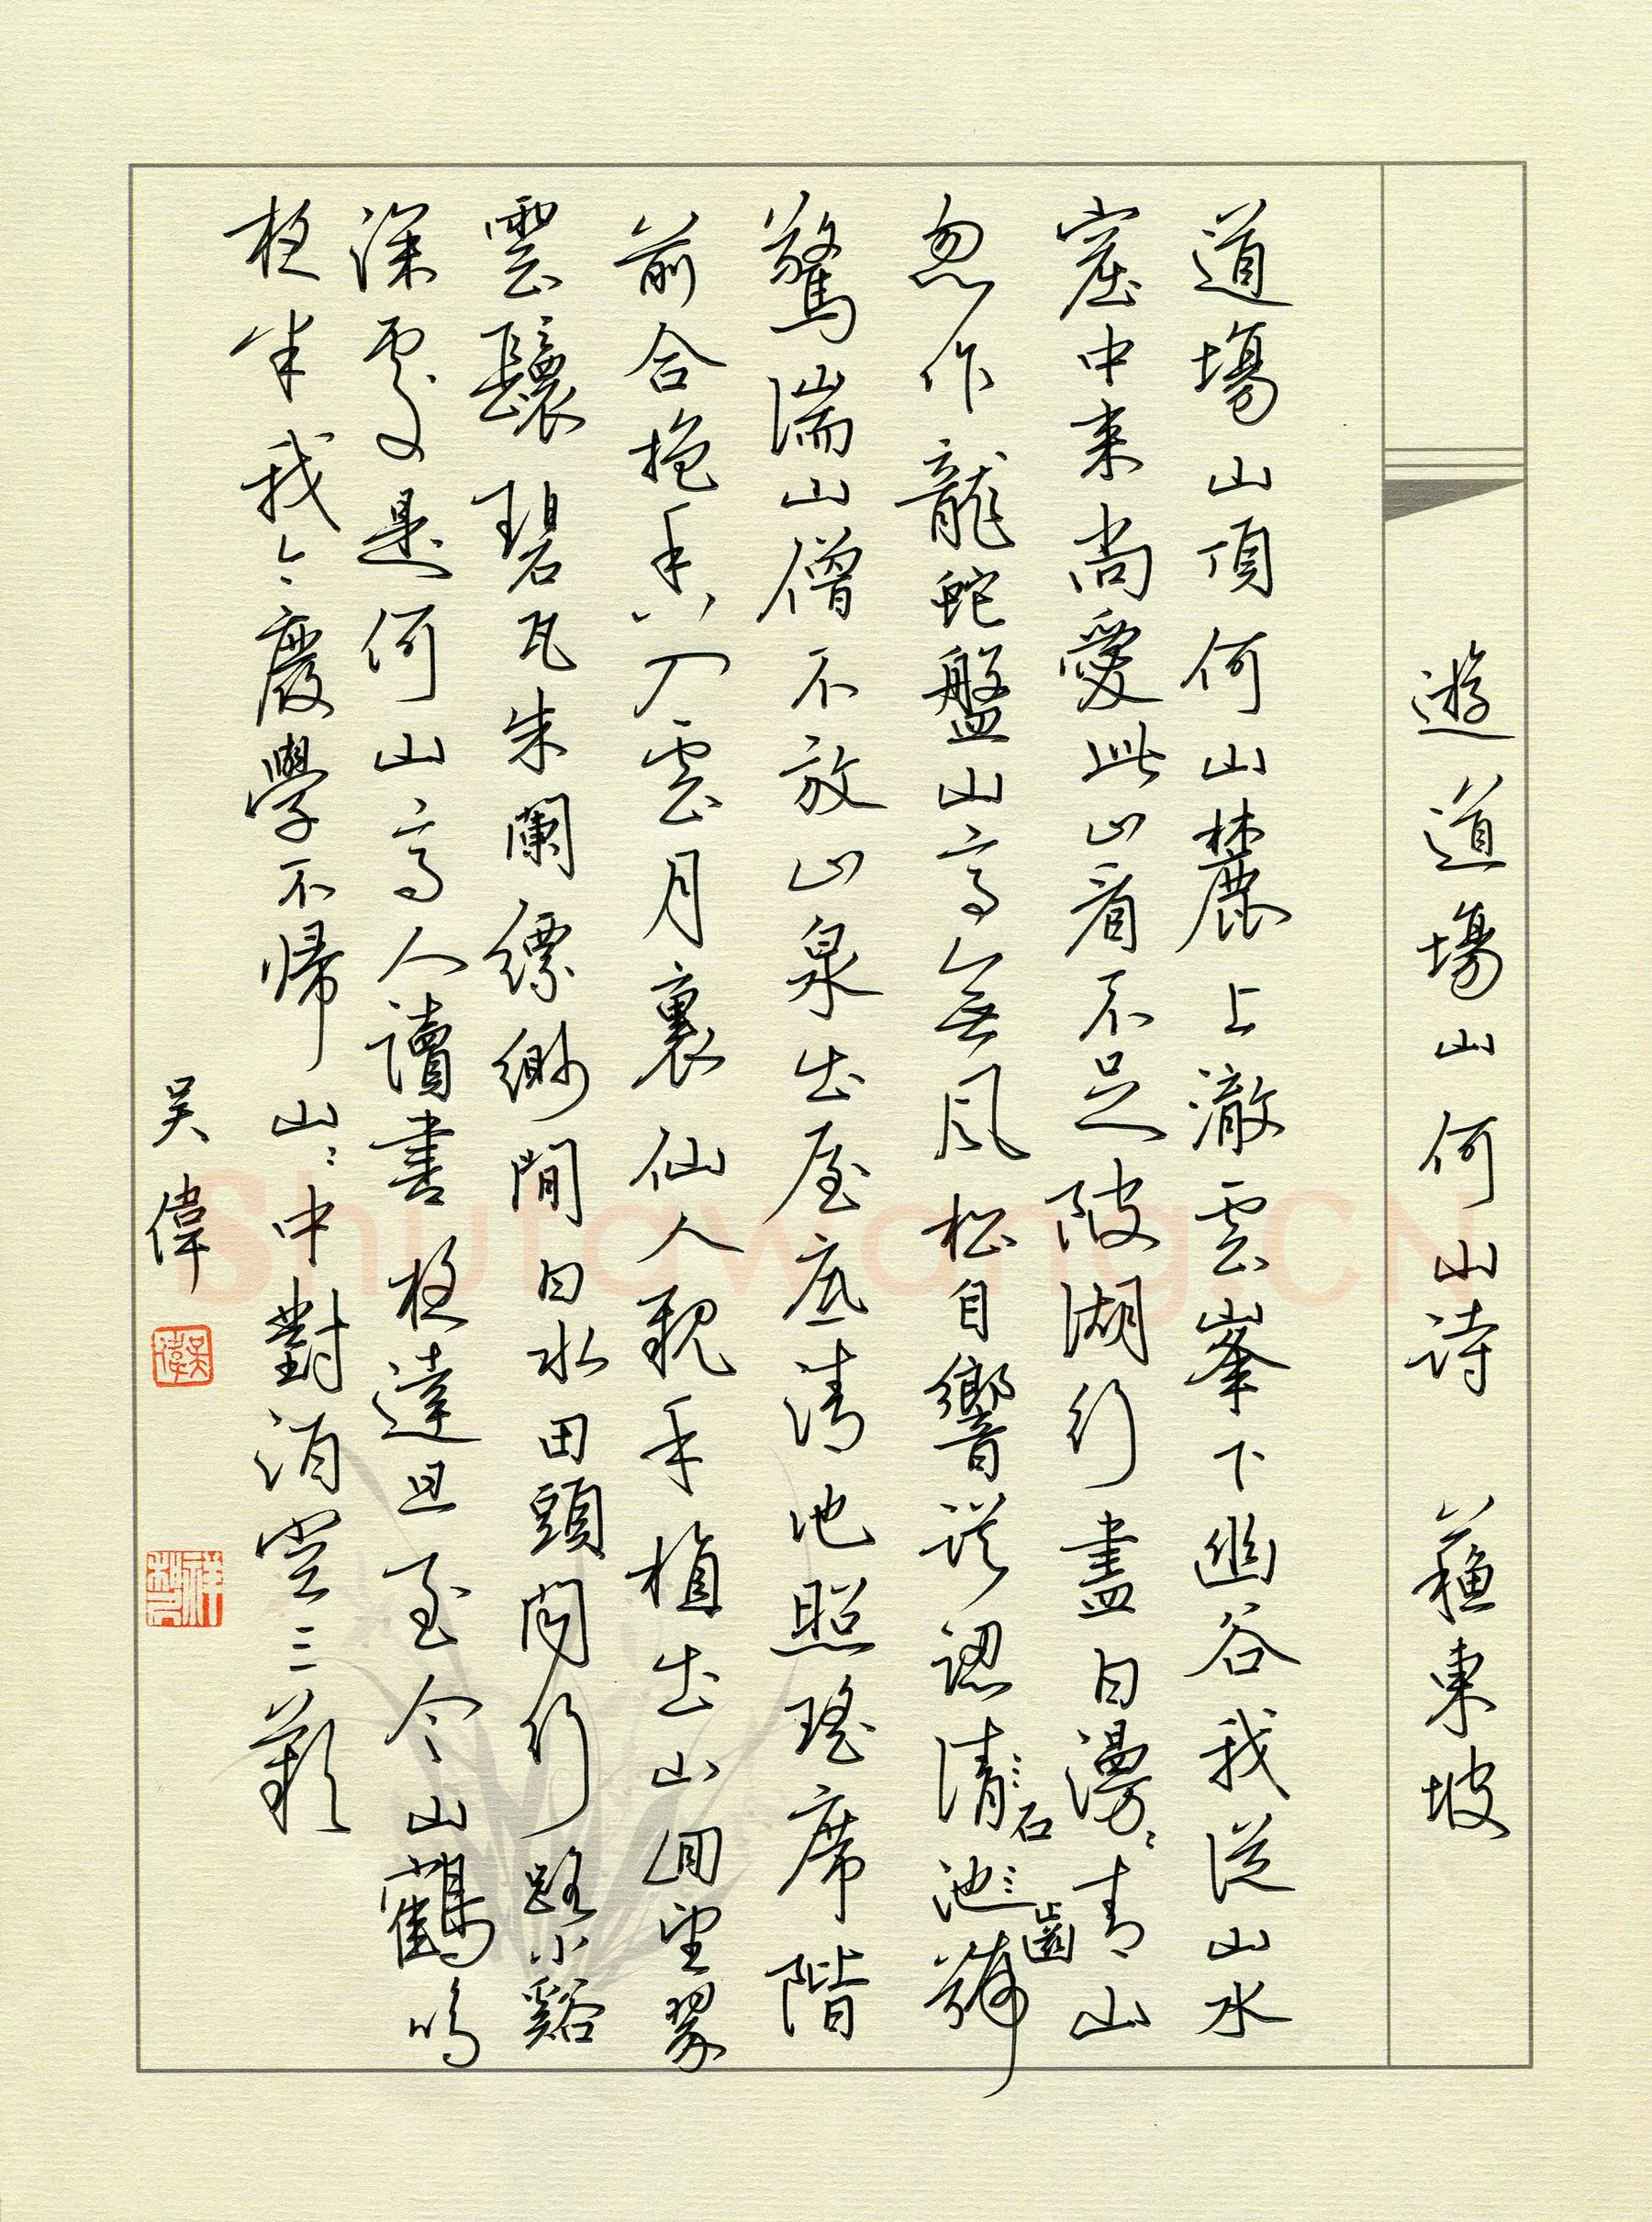 遊道場山何山詩 蘇東坡
道場山頂何山麓上澈雲峯下幽谷我從山水
窟中来尚愛此山看不足陂湖行盡白漫〻青山
忽作龍蛇盤山高無風松自響誤認清石池齒號
驚湍山僧不放山泉出屋底清池照瑤席階
前合抱香入雲月裏仙人親手植出山回望翠
雲鬟碧瓦朱闌縹緲間白水田頭問行路小谿
深處是何山高人讀書夜達旦至今山鶴鳴
夜半我今廢學不歸山〻中對酒空三歎
吴偉
吳偉
Shufawang.CN